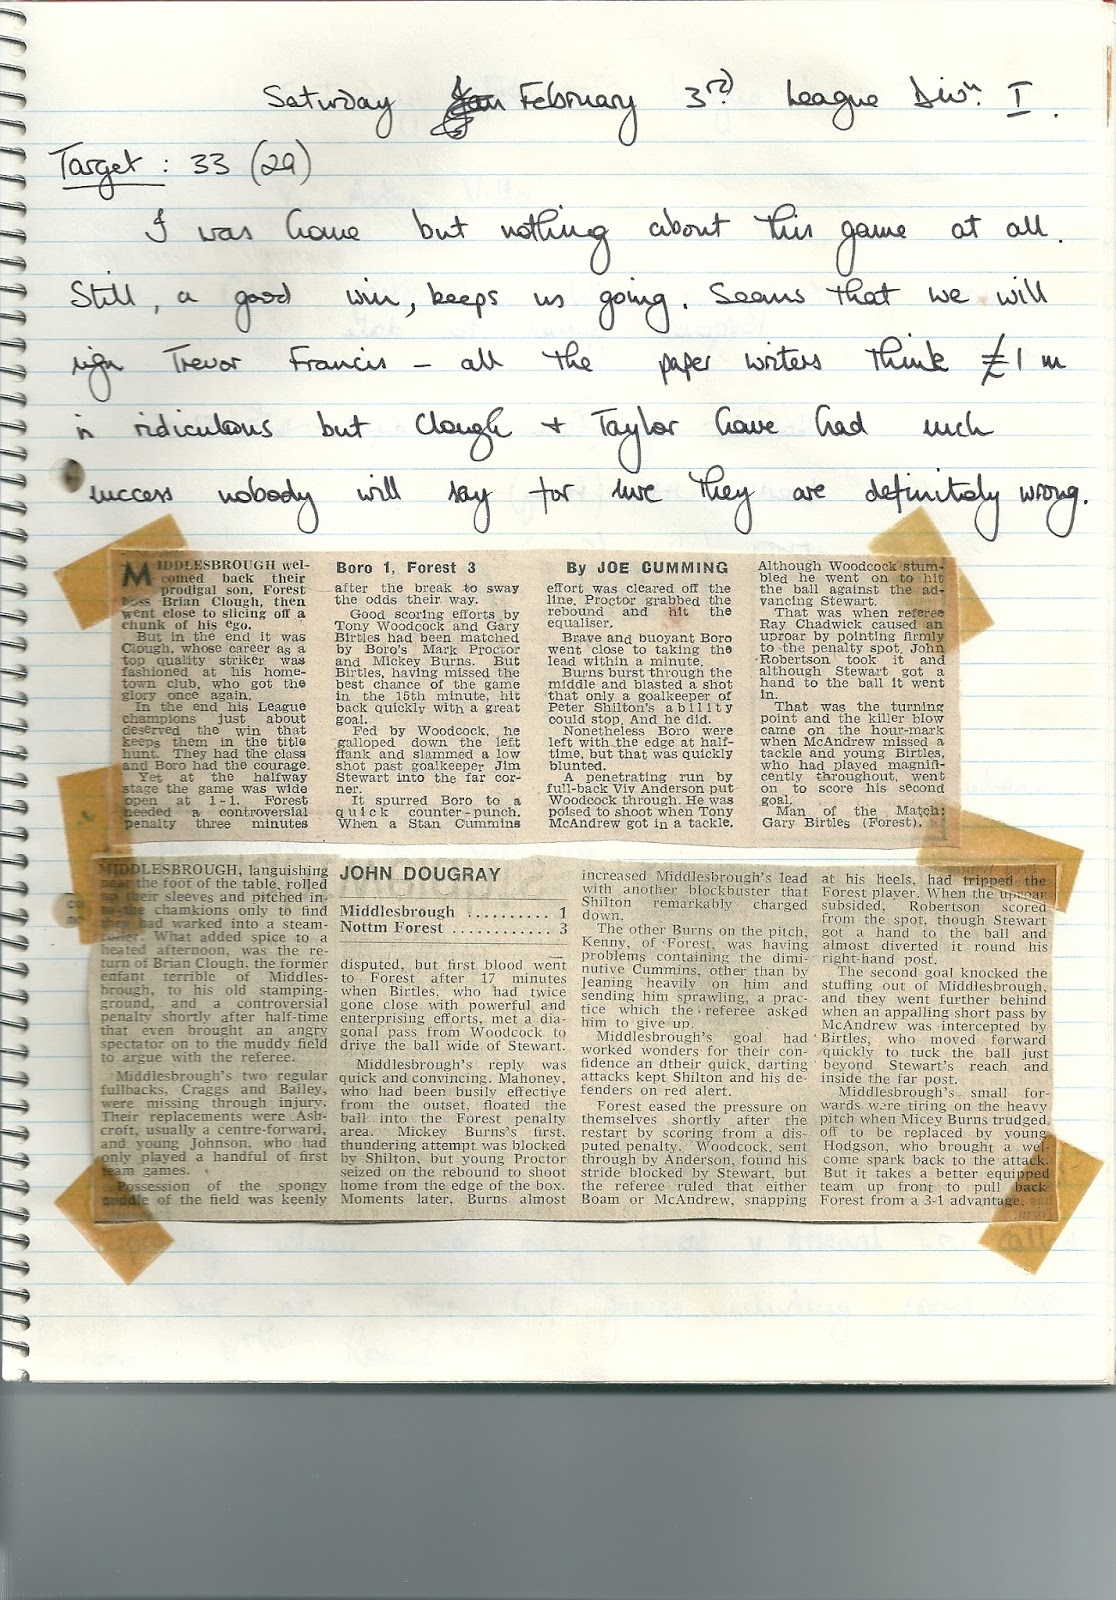 Saturday February 3rd League Divn. I.
Target : 33 (29)
I was home but nothing about this game at all.
Still, a good win, keeps us going. Seems that we will
sign Trevor Francis – all the paper writers think £1m
is ridiculous but Clough + Taylor have had such
success nobody will say for sure they are definitely wrong.
MIDDLESBROUGH wel-
comed back their
prodigal son, Forest
boss Brian Clough, then
went close to slicing off a
chunk of his ego.
But in the end it was
Clough, whose career as a
top quality striker was
fashioned at his home-
town club, who got the
glory once again.
In the end his League
champions just about
deserved the win that
keeps them in the title
hunt. They had the class
and Boro had the courage.
Yet at the halfway
stage the game was wide
open at 1-1. Forest
needed a controversial
penalty three minutes
Boro 1, Forest 3
after the break to sway
the odds their way.
Good scoring efforts by
Tony Woodcock and Gary
Birtles had been matched
by Boro's Mark Proctor
and Mickey Burns. But
Birtles, having missed the
best chance of the game
in the 15th minute, hit
back quickly with a great
goal.
Fed by Woodcock, he
galloped down the left
flank and slammed a low
shot past goalkeeper Jim
Stewart into the far cor-
ner.
It spurred Boro to a
quick counter-punch.
When a Stan Cummins
By JOE CUMMING
effort was cleared off the
line, Proctor grabbed the
rebound and hit the
equaliser.
Brave and buoyant Boro
went close to taking the
lead within a minute.
Burns burst through the
middle and blasted a shot
that only a goalkeeper of
Peter Shilton's ability
could stop. And he did.
Nonetheless Boro were
left with the edge at half-
time, but that was quickly
blunted.
A penetrating run by
full-back Viv Anderson put
Woodcock through. He was
poised to shoot when Tony
McAndrew got in a tackle.
Although Woodcock stum-
bled he went on to hit
the ball against the ad-
vancing Stewart.
That was when referee
Ray Chadwick caused an
uproar by pointing firmly
to the penalty spot. John
Robertson took it and
although Stewart got a
hand to the ball it went
in.
That was the turning
point and the killer blow
came on the hour-mark
when McAndrew missed a
tackle and young Birtles,
who had played magnifi-
cently throughout, went
on to score his second
goal.
Man of the Match:
Gary Birtles (Forest).
MIDDLESBROUGH, languishing
near the foot of the table, rolled
up their sleeves and pitched in-
to the chamkions only to find
they had warked into a steam-
roller. What added spice to a
heated afternoon, was the re-
turn of Brian Clough, the former
enfant terrible of Middles-
brough, to his old stamping-
ground, and a controversial
penalty shortly after half-time
that even brought an angry
spectator on to the muddy field
to argue with the referee.
Middlesbrough's two regular
fullbacks, Craggs and Bailey,
were missing through injury.
Their replacements were Ash-
croft, usually a centre-forward,
and young Johnson, who had
only played a handful of first
team games.
Possession of the spongy
puddle of the field was keenly
JOHN DOUGRAY
Middlesbrough .......... 1
Nottm Forest ............ 3
disputed, but first blood went
to Forest after 17 minutes
when Birtles, who had twice
gone close with powerful and
enterprising efforts, met a dia-
gonal pass from Woodcock to
drive the ball wide of Stewart.
Middlesbrough's reply was
quick and convincing. Mahoney,
who had been busily effective
from the outset, floated the
ball into the Forest penalty
area. Mickey Burns's first,
thundering attempt was blocked
by Shilton, but young Proctor
seized on the rebound to shoot
home from the edge of the box.
Moments later, Burns almost
increased Middlesbrough's lead
with another blockbuster that
Shilton remarkably charged
down.
The other Burns on the pitch,
Kenny, of Forest, was having
problems containing the dimi-
nutive Cummins, other than by
leaning heavily on him and
sending him sprawling, a prac-
tice which the referee asked
him to give up.
Middlesbrough's goal had
worked wonders for their con-
fidence an dtheir quick, darting
attacks kept Shilton and his de-
fenders on red alert.
Forest eased the pressure on
themselves shortly after the
restart by scoring from a dis-
puted penalty. Woodcock, sent
through by Anderson, found his
stride blocked by Stewart, but
the referee ruled that either
Boam or McAndrew, snapping
at his heels, had tripped the
Forest player. When the uproar
subsided, Robertson scored
from the spot, though Stewart
got a hand to the ball and
almost diverted it round his
right-hand post.
The second goal knocked the
stuffing out of Middlesbrough,
and they went further behind
when an appalling short pass by
McAndrew was intercepted by
Birtles, who moved forward
quickly to tuck the ball just
beyond Stewart's reach and
inside the far post.
Middlesbrough's small for-
wards were tiring on the heavy
pitch when Micey Burns trudged
off to be replaced by young
Hodgson, who brought a wel-
come spark back to the attack.
But it takes a better equipped
team up front to pull back
Forest from a 3-1 advantage.